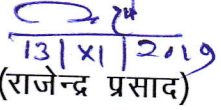 13|XI|2019
(राजेन्द्र प्रसाद)